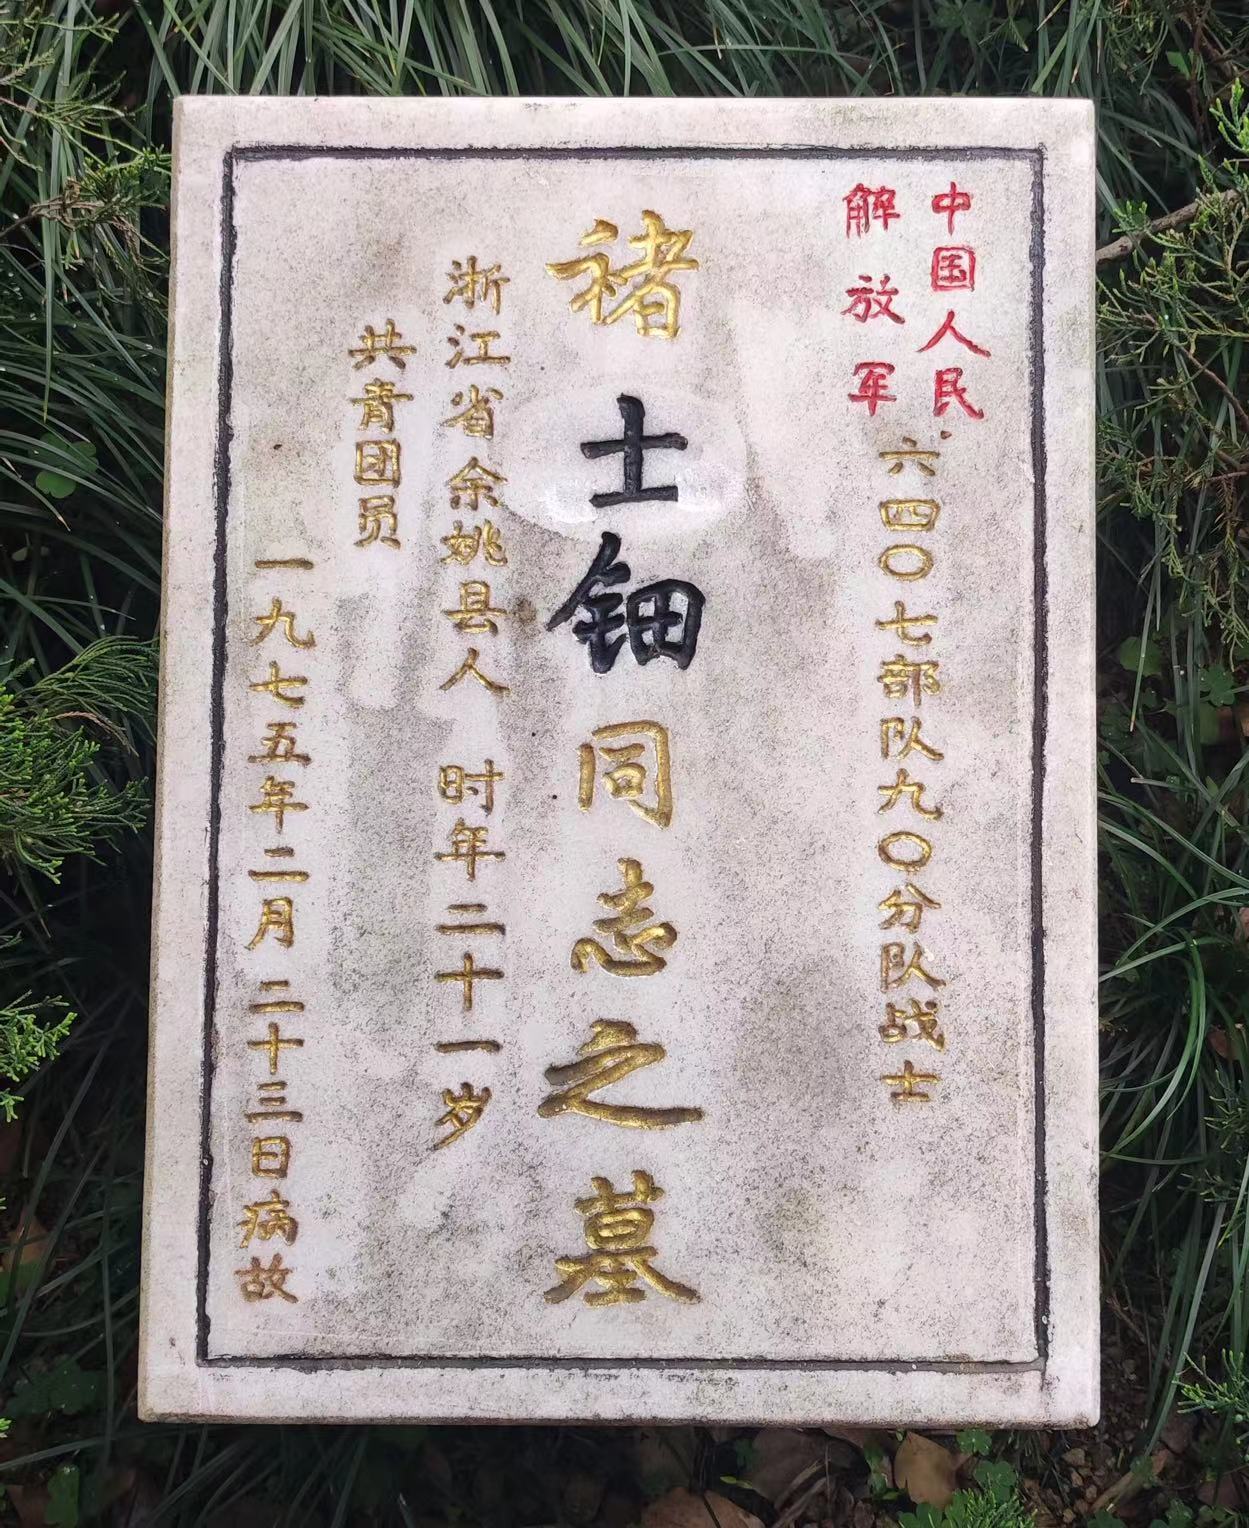 中国人民
解放军
六四〇七部队九〇分队战士
褚士钿同志之墓
浙江省余姚县人 时年二十一岁
共青团员
一九七五年二月二十三日病故